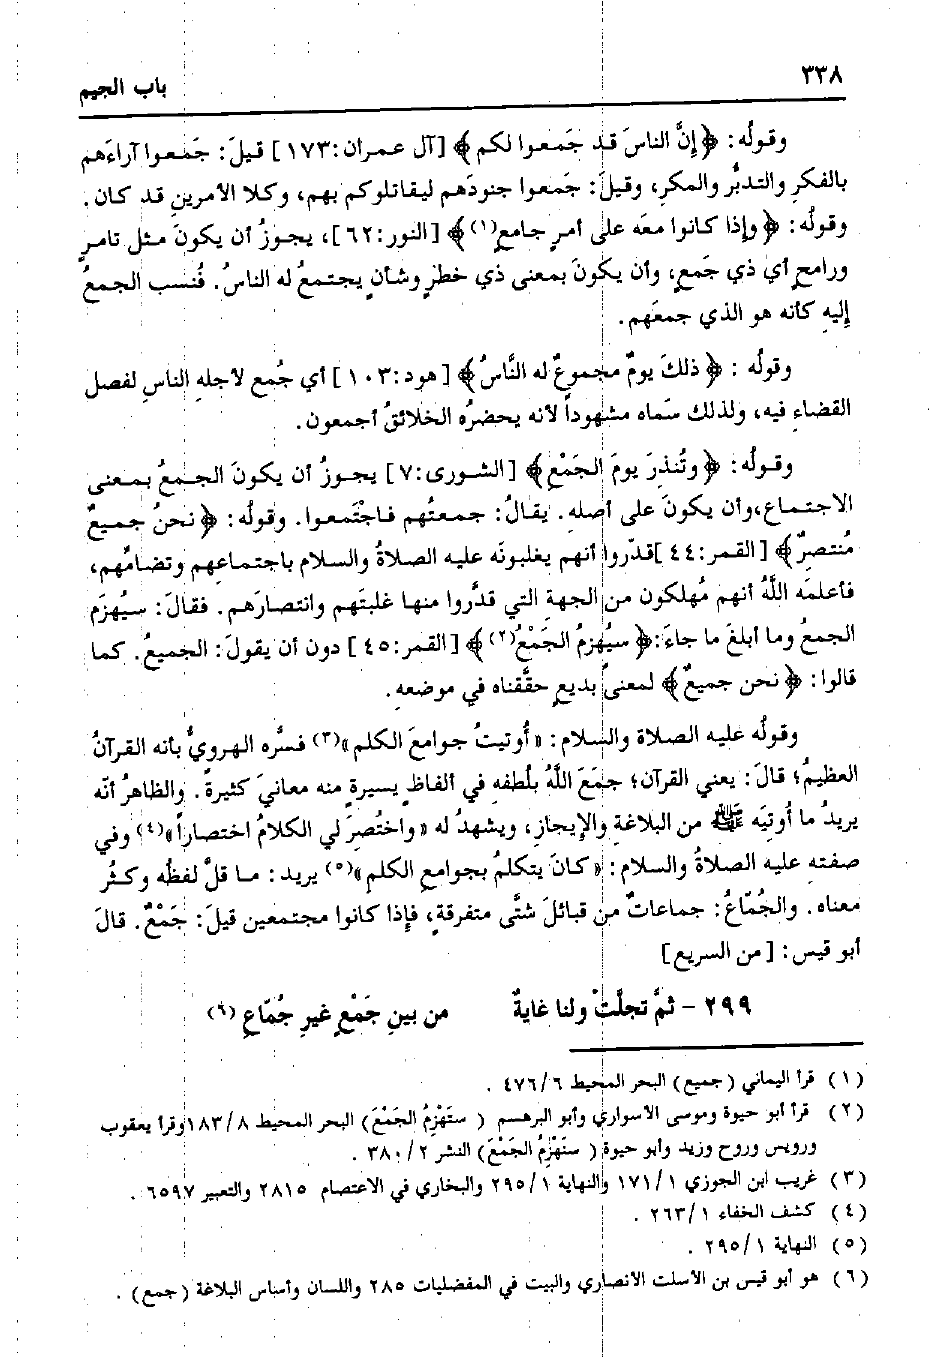 ٣٣٨
باب الجيم
وقولُه: ﴿إنَّ الناسَ قد جَمعوا لكم﴾ [آل عمران: ١٧٣] قيلَ: جَمعوا آراءَهم
بالفكرِ والتدبُّر والمكرِ، وقيلَ: جَمعوا جنودَهم ليقاتلوكم بهم، وكلا الأمرينِ قد كان.
وقولُه: ﴿وإذا كانوا معَه على أمرٍ جامعٍ(١)﴾ [النور: ٦٢]، يجوزُ أن يكونَ مثل تامرٍ
ورامحٍ أي ذي جَمعٍ، وأن يكونَ بمعنى ذي خطرٍ وشأنٍ يجتمعُ له الناسُ. فنُسب الجمعُ
إليهِ كأنه هو الذي جمعَهم.
وقولُه: ﴿ذلكَ يومٌ مجموعٌ له النَّاسُ﴾ [هود: ١٠٣] أي جُمع لأجلهِ الناس لفصل
القضاءِ فيه، ولذلك سَماه مشهوداً لأنه يحضرُه الخلائقُ أجمعون.
وقولُه: ﴿وتُنذِرَ يومَ الجَمْعِ﴾ [الشورى: ٧] يجوزُ أن يكونَ الجمعُ بمعنى
الاجتماعِ، وأن يكونَ على أصلهِ. يقالُ: جمعتُهم فاجتَمعوا. وقولُه: ﴿نحنُ جميعٌ
مُنتصرٌ﴾ [القمر: ٤٤] قدّروا أنهم يغلبونَه عليه الصلاةُ والسلام باجتماعِهم وتضامُّهم،
فأعلمَه اللَّهُ أنهم مُهلكون من الجهةِ التي قدَّروا منها غلبتَهم وانتصارَهم. فقالَ: سيُهزَم
الجمعُ وما أبلغَ ما جاءَ: ﴿سيُهزمُ الجَمْعُ(٢)﴾ [القمر: ٤٥] دون أن يقولَ: الجميعُ. كما
قالوا: ﴿نحن جميعٌ﴾ لمعنىً بديعٍ حقَّقناه في موضعهِ.
وقولُه عليه الصلاة والسلام: «أُوتيتُ جوامعَ الكلم»(٣) فسَّره الهرويُّ بأنه القرآنُ
العظيمُ؛ قالَ: يعني القرآن؛ جمَعَ اللَّهُ بلُطفهِ في ألفاظٍ يسيرةٍ منه معانيَ كثيرةً. والظاهرُ أنّه
يريدُ ما أُوتيَه ﷺ من البلاغةِ والإيجازِ، ويشهدُ له «واختُصِرَ لي الكلامُ اختصاراً»(٤) وفي
صفته عليه الصلاةُ والسلام: «كانَ يتكلمُ بجوامعِ الكلم»(٥) يريد: ما قلَّ لفظُه وكثُر
معناه. والجُمّاعُ: جماعاتٌ من قبائلَ شتَّى متفرقة، فإذا كانوا مجتمعين قيلَ: جَمْعٌ. قالَ
أبو قيس: [من السريع]
٢٩٩ - ثمَّ تجلَّتْ ولنا غايةٌ من بينِ جَمْعٍ غيرِ جُمّاعِ (٦)
(١) قرأ اليماني (جميع) البحر المحيط ٤٧٦/٦.
(٢) قرأ أبو حيوة وموسى الأسواري وأبو البرهسم (ستَهْزِمُ الجَمْعَ) البحر المحيط ١٨٣/٨ وقرأ يعقوب
ورويس وروح وزيد وأبو حيوة (سنَهْزِمُ الجَمْعَ) النشر ٣٨٠/٢.
(٣) غريب ابن الجوزي ١٧١/١ والنهاية ٢٩٥/١ والبخاري في الاعتصام ٢٨١٥ والتعبير ٦٥٩٧.
(٤) كشف الخفاء ٢٦٣/١.
(٥) النهاية ٢٩٥/١.
(٦) هو أبو قيس بن الأسلت الأنصاري والبيت في المفضليات ٢٨٥ واللسان وأساس البلاغة (جمع).